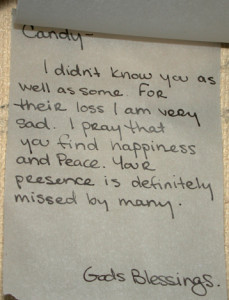 Candy-
I didn't know you as
well as some. For
their loss I am very
sad. I pray that
you find happiness
and Peace. Your
presence is definitely
missed by many.
Gods Blessings.